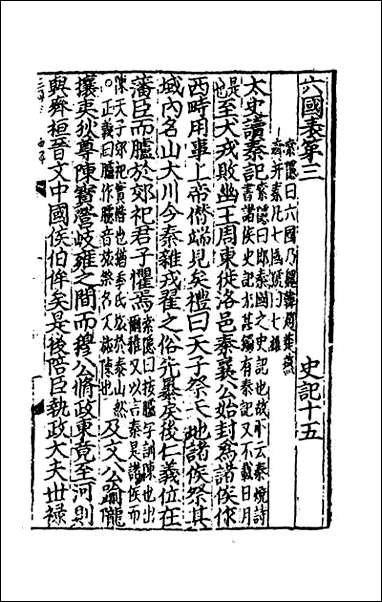 六國表第三　史記十五
索隱曰六國乃魏韓趙燕
齊并秦凡七國號曰七雄
太史讀秦記索隱曰即秦國之史記也故下云秦燒詩
書諸侯史記尤甚獨有秦記又不載日月
是也至犬戎敗幽王周東徙洛邑秦襄公始封為諸侯作
西畤用事上帝僭端見矣禮曰天子祭天地諸侯祭其
域內名山大川今秦雜戎翟之俗先暴戾後仁義位在
藩臣而臚於郊祀君子懼焉索隱曰按臚字訓陳也出
爾雅又以言秦是諸侯而
陳天子郊祀實僭也猶季氏旅於泰山然
○正義曰臚作臚音旅祭名又旅陳也及文公踰隴
攘夷狄尊陳寶營岐雍之間而穆公脩政東竟至河則
與齊桓晉文中國侯伯侔矣是後陪臣執政大夫世祿